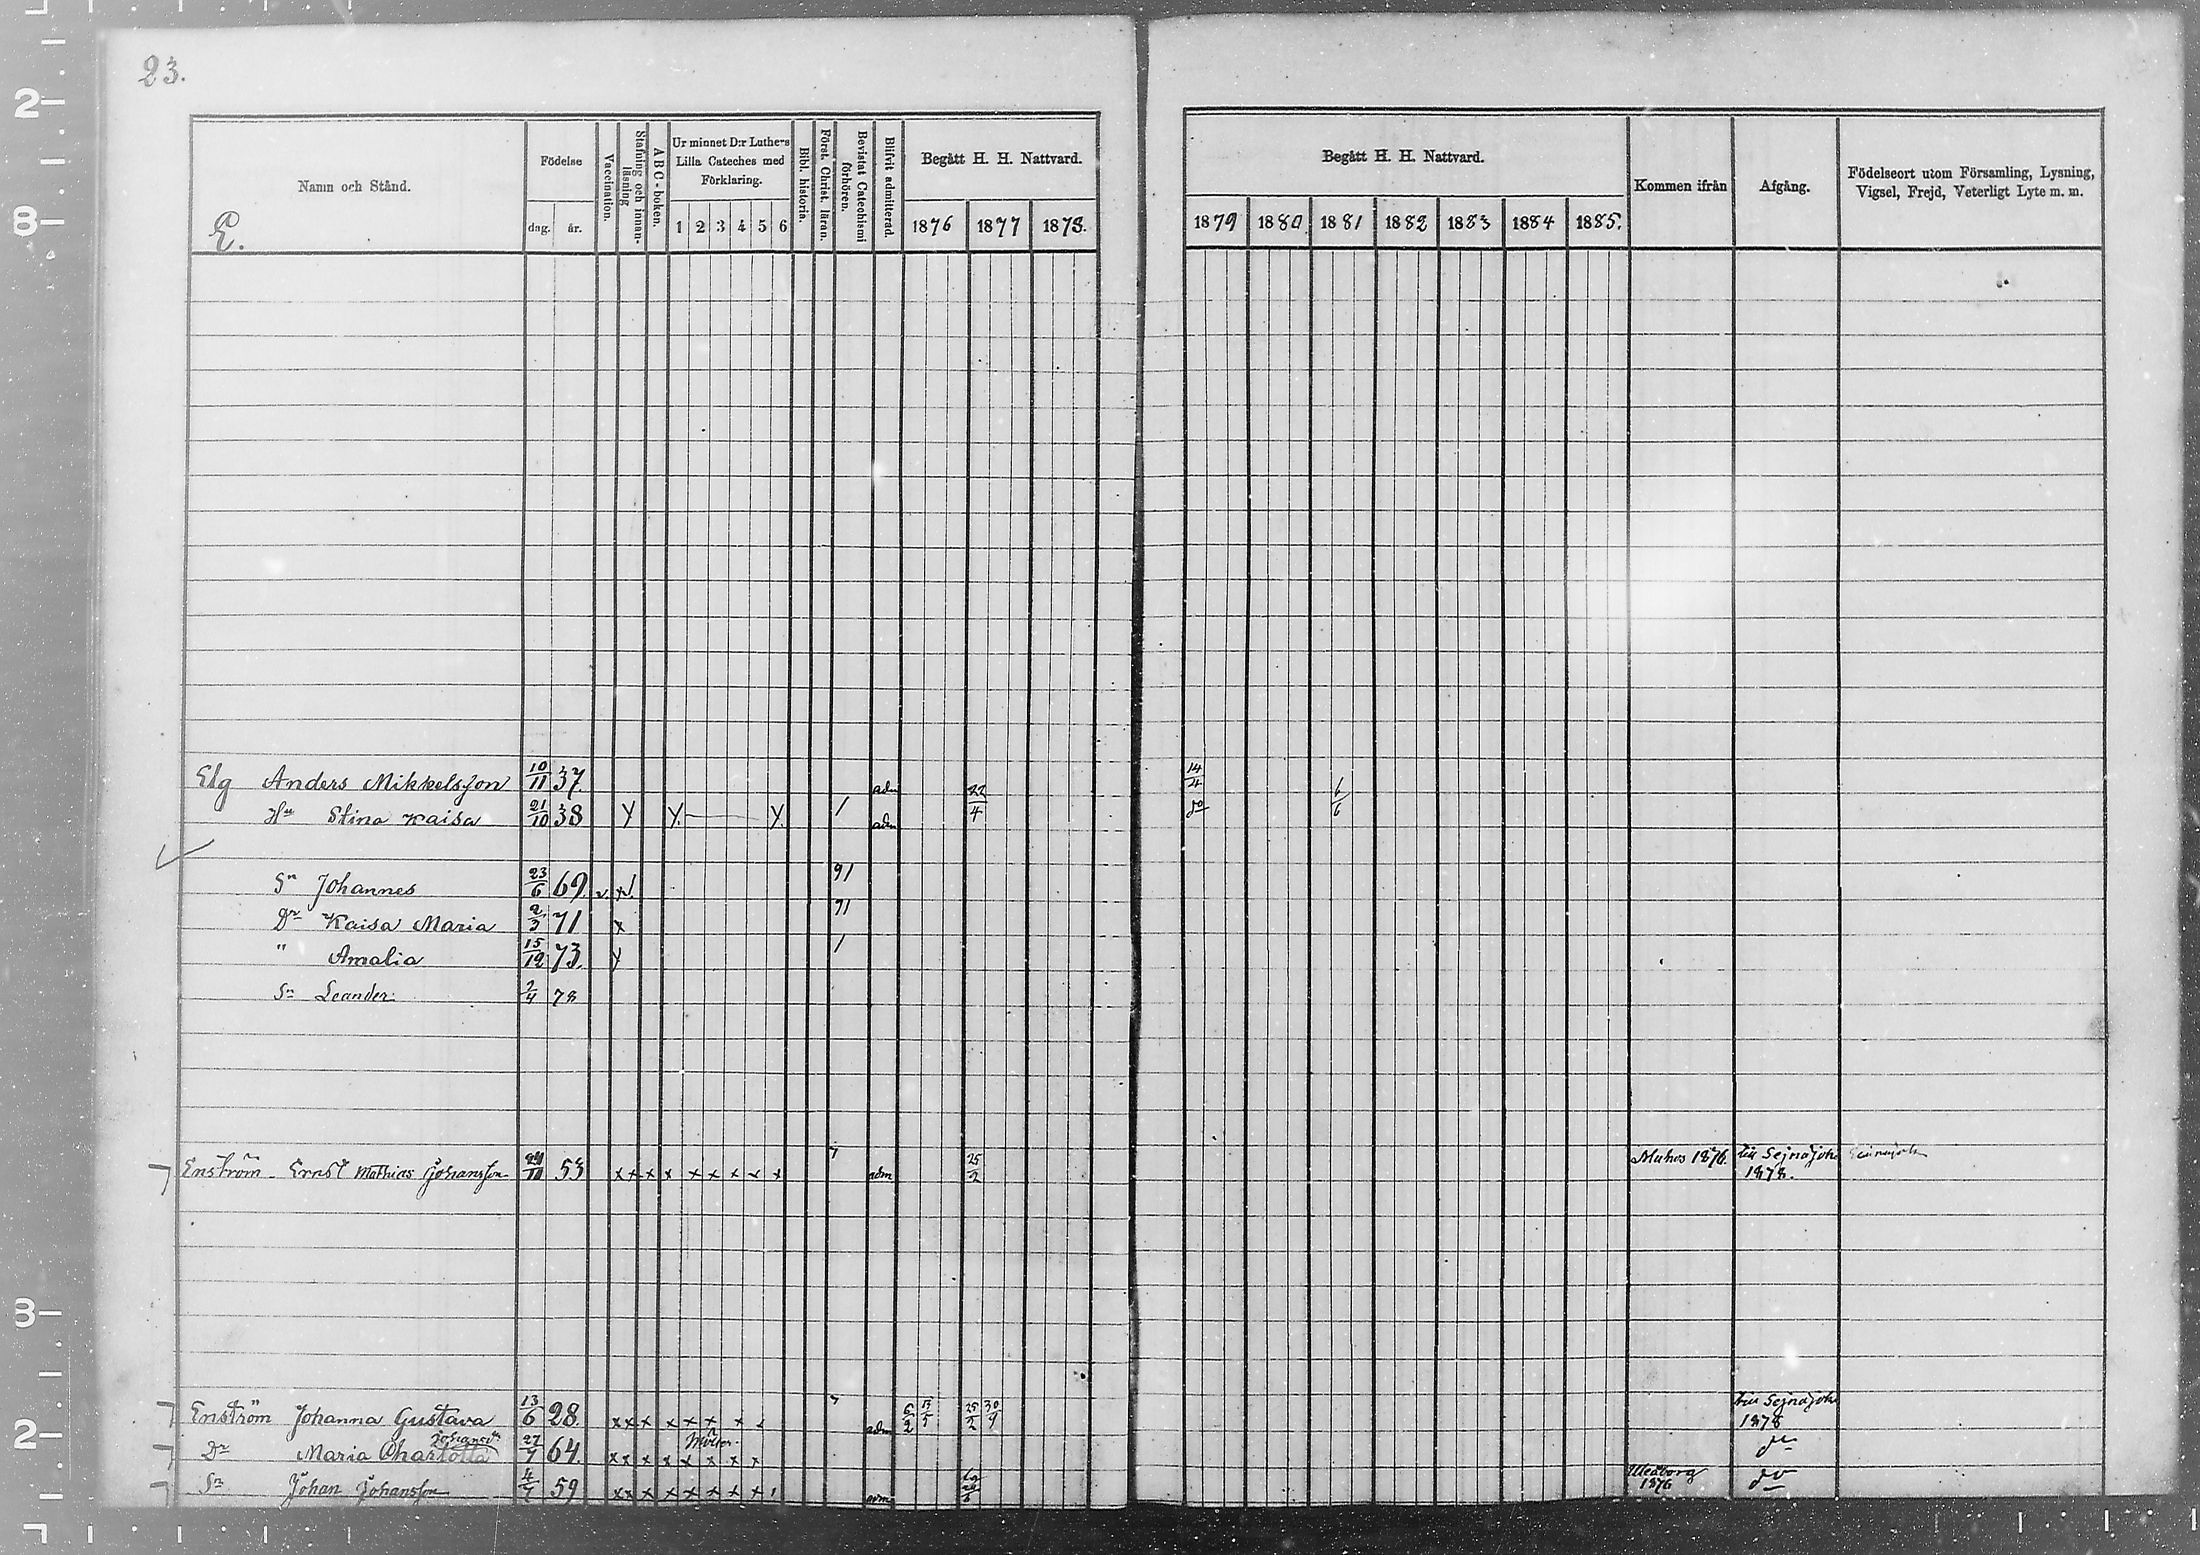 23.
Namn och Stånd.
E.
Födelse
dag. år.
Vaccination.
Stafning och innan-läsning
ABC-boken.
Ur minnet D:r Luthers Lilla Cateches med Förklaring.
1 2 3 4 5 6
Bibl. historia.
Först. Christ. läran.
Bevistat Catechismi förhören.
Blifvit admitterad.
Begått H. H. Nattvard.
1876 1877 1878.
Begått H. H. Nattvard.
1879 1880 1881 1882 1883 1884 1885.
Kommen ifrån
Afgång.
Födelseort utom Församling, Lysning, Vigsel, Frejd, Veterligt Lyte m. m.
Elg Anders Mikkelsson 10/11 37. adm 22/4 14/4 6/6
Hu Stina Kaisa 21/10 38 Y Y Y. / adm do
Sn Johannes 23/6 69. v. x 91
Dr Kaisa Maria 2/3 71 x 91
" Amalia 15/12 73. Y /
Sn Leander 2/4 78
Enström Ernst Mathias Johansson 53 x x x x x x x x x 7 adm 25/2 Muhos 1876. till Sejnäjoki 1878.
Enström Johanna Gustava 13/6 28. x x x x x x x 7 adm 6/2 13/5 25/2 30/9 till Sejnäjoki 1878
Dr Maria Charlotta 27/7 64. x x x x x x x x do
Sn Johan Johansson 4/7 59 x x x x x x x x adm Uleåborg 1876 do